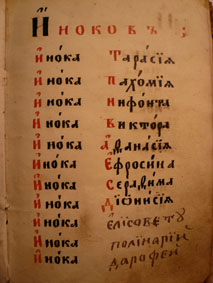 И҆ноковъ ;
И҆но́ка Тара́сїѧ
И҆но́ка Пахо́мїѧ
И҆но́ка Нифонта
И҆но́ка Ви́ктора
И҆но́ка А҆ѳана́сїѧ
И҆но́ка Е҆фросина
И҆но́ка Серапи́ма
И҆но́ка Дїѻни́сїѧ
И҆но́ка Єлісовету
И҆но́ка полінарій
И҆но́ка Дарофей